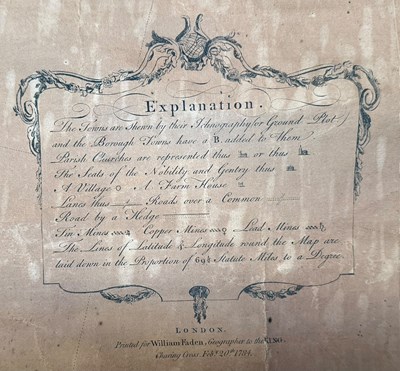 Explanation.
The Towns are Shewn by their Ichnography, or Ground-Plot,
and the Borough Towns have a B. added to them
Parish Churches are represented thus or thus
The Seats of the Nobility and Gentry thus
A Village A Farm House
Lines thus Roads over a Common
Road by a Hedge
Tin Mines Copper Mines Lead Mines
The Lines of Latitude & Longitude round the Map are
laid down in the Proportion of 69½ Statute Miles to a Degree
LONDON.
Printed for William Faden, Geographer to the KING.
Charing Cross Feby. 20th 1784.